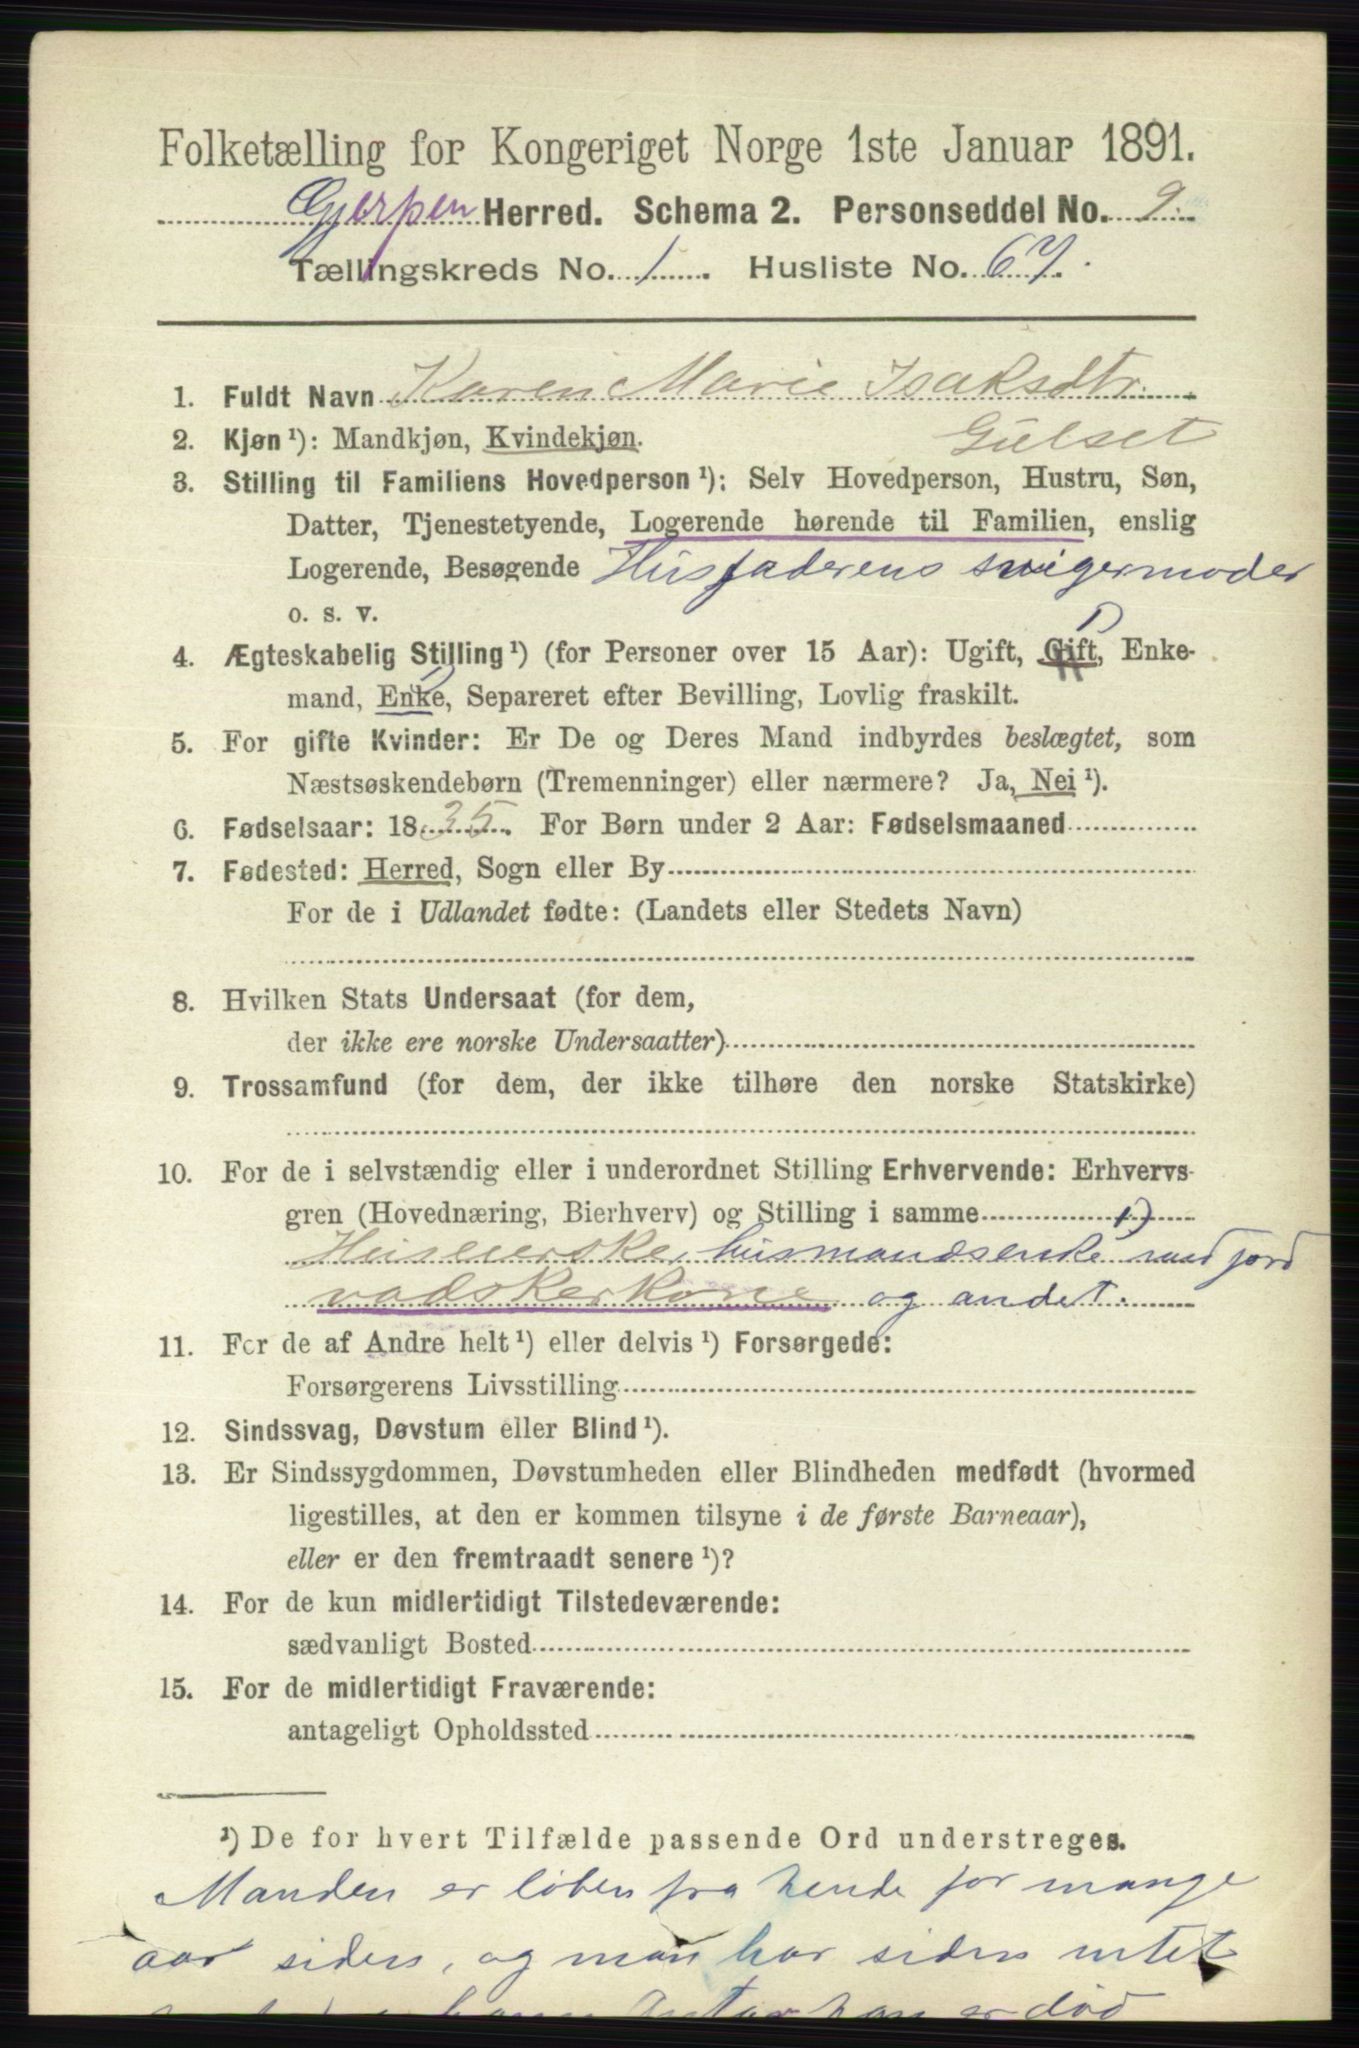 Folketælling for Kongeriget Norge 1ste Januar 1891.
Gjerpen Herred. Schema 2. Personseddel No. 9.
Tællingskreds No. 1. Husliste No. 67.
1. Fuldt Navn Karen Marie Isaksdtr.
Gulset
2. Kjøn ¹): Mandkjøn, Kvindekjøn.
3. Stilling til Familiens Hovedperson ¹): Selv Hovedperson, Hustru, Søn,
Datter, Tjenestetyende, Logerende hørende til Familien, enslig
Logerende, Besøgende Husfaderens svigermoder
o. s. v.
4. Ægteskabelig Stilling ¹) (for Personer over 15 Aar): Ugift, Gift, Enke-
mand, Enke, Separeret efter Bevilling, Lovlig fraskilt.
5. For gifte Kvinder: Er De og Deres Mand indbyrdes beslægtet, som
Næstsøskendebørn (Tremenninger) eller nærmere? Ja, Nei ¹).
6. Fødselsaar: 1835. For Børn under 2 Aar: Fødselsmaaned
7. Fødested: Herred, Sogn eller By
For de i Udlandet fødte: (Landets eller Stedets Navn)
8. Hvilken Stats Undersaat (for dem,
der ikke ere norske Undersaatter)
9. Trossamfund (for dem, der ikke tilhøre den norske Statskirke)
10. For de i selvstændig eller i underordnet Stilling Erhvervende: Erhvervs-
gren (Hovednæring, Bierhverv) og Stilling i samme 1)
Huseierske, husmandsenke med jord
vadskerkone og andet.
11. For de af Andre helt ¹) eller delvis ¹) Forsørgede:
Forsørgerens Livsstilling
12. Sindssvag, Døvstum eller Blind ¹).
13. Er Sindssygdommen, Døvstumheden eller Blindheden medfødt (hvormed
ligestilles, at den er kommen tilsyne i de første Barneaar),
eller er den fremtraadt senere ¹)?
14. For de kun midlertidigt Tilstedeværende:
sædvanligt Bosted
15. For de midlertidigt Fraværende:
antageligt Opholdssted
¹) De for hvert Tilfælde passende Ord understreges.
Manden er löben fra hende for mange
aar siden, og man har siden intet
han er död